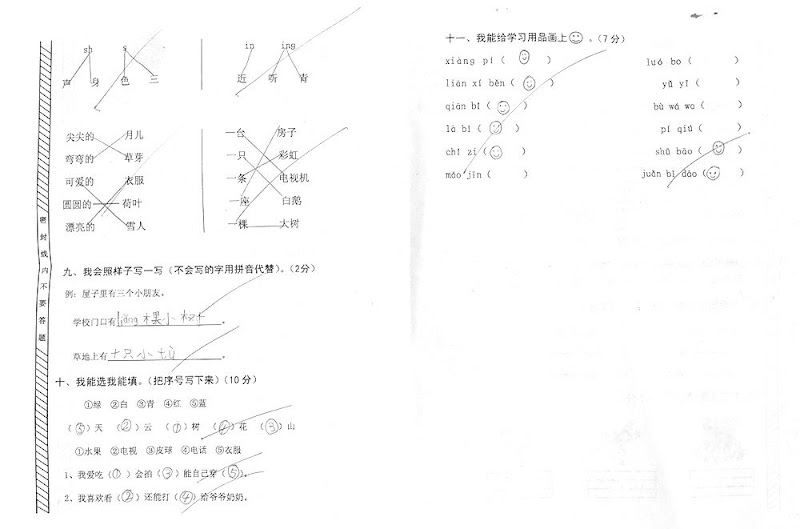 sh s
声 身 色 三
in ing
近 听 青
尖尖的 月儿
弯弯的 草芽
可爱的 衣服
圆圆的 荷叶
漂亮的 雪人
一台 房子
一只 彩虹
一条 电视机
一座 白鹅
一棵 大树
密封线内不要答题
九、我会照样子写一写（不会写的字用拼音代替）。（2分）
例：屋子里有三个小朋友。
学校门口有liǎng棵小树。
草地上有十只小。
十、我能选我能填。（把序号写下来）（10分）
①绿 ②白 ③青 ④红 ⑤蓝
（⑤）天 （②）云 （①）树 （④）花 （③）山
①水果 ②电视 ③皮球 ④电话 ⑤衣服
1、我爱吃（①）会拍（③）能自己穿（⑤）。
2、我喜欢看（②）还能打（④）给爷爷奶奶。
十一、我能给学习用品画上☺。（7分）
xiàng pí（☺） luó bo（ ）
liàn xí běn（☺） yǔ yī（ ）
qiān bǐ（☺） bù wá wa（ ）
là bǐ（☺） pí qiú（ ）
chǐ zi（☺） shū bāo（☺）
máo jīn（ ） juǎn bǐ dāo（☺）